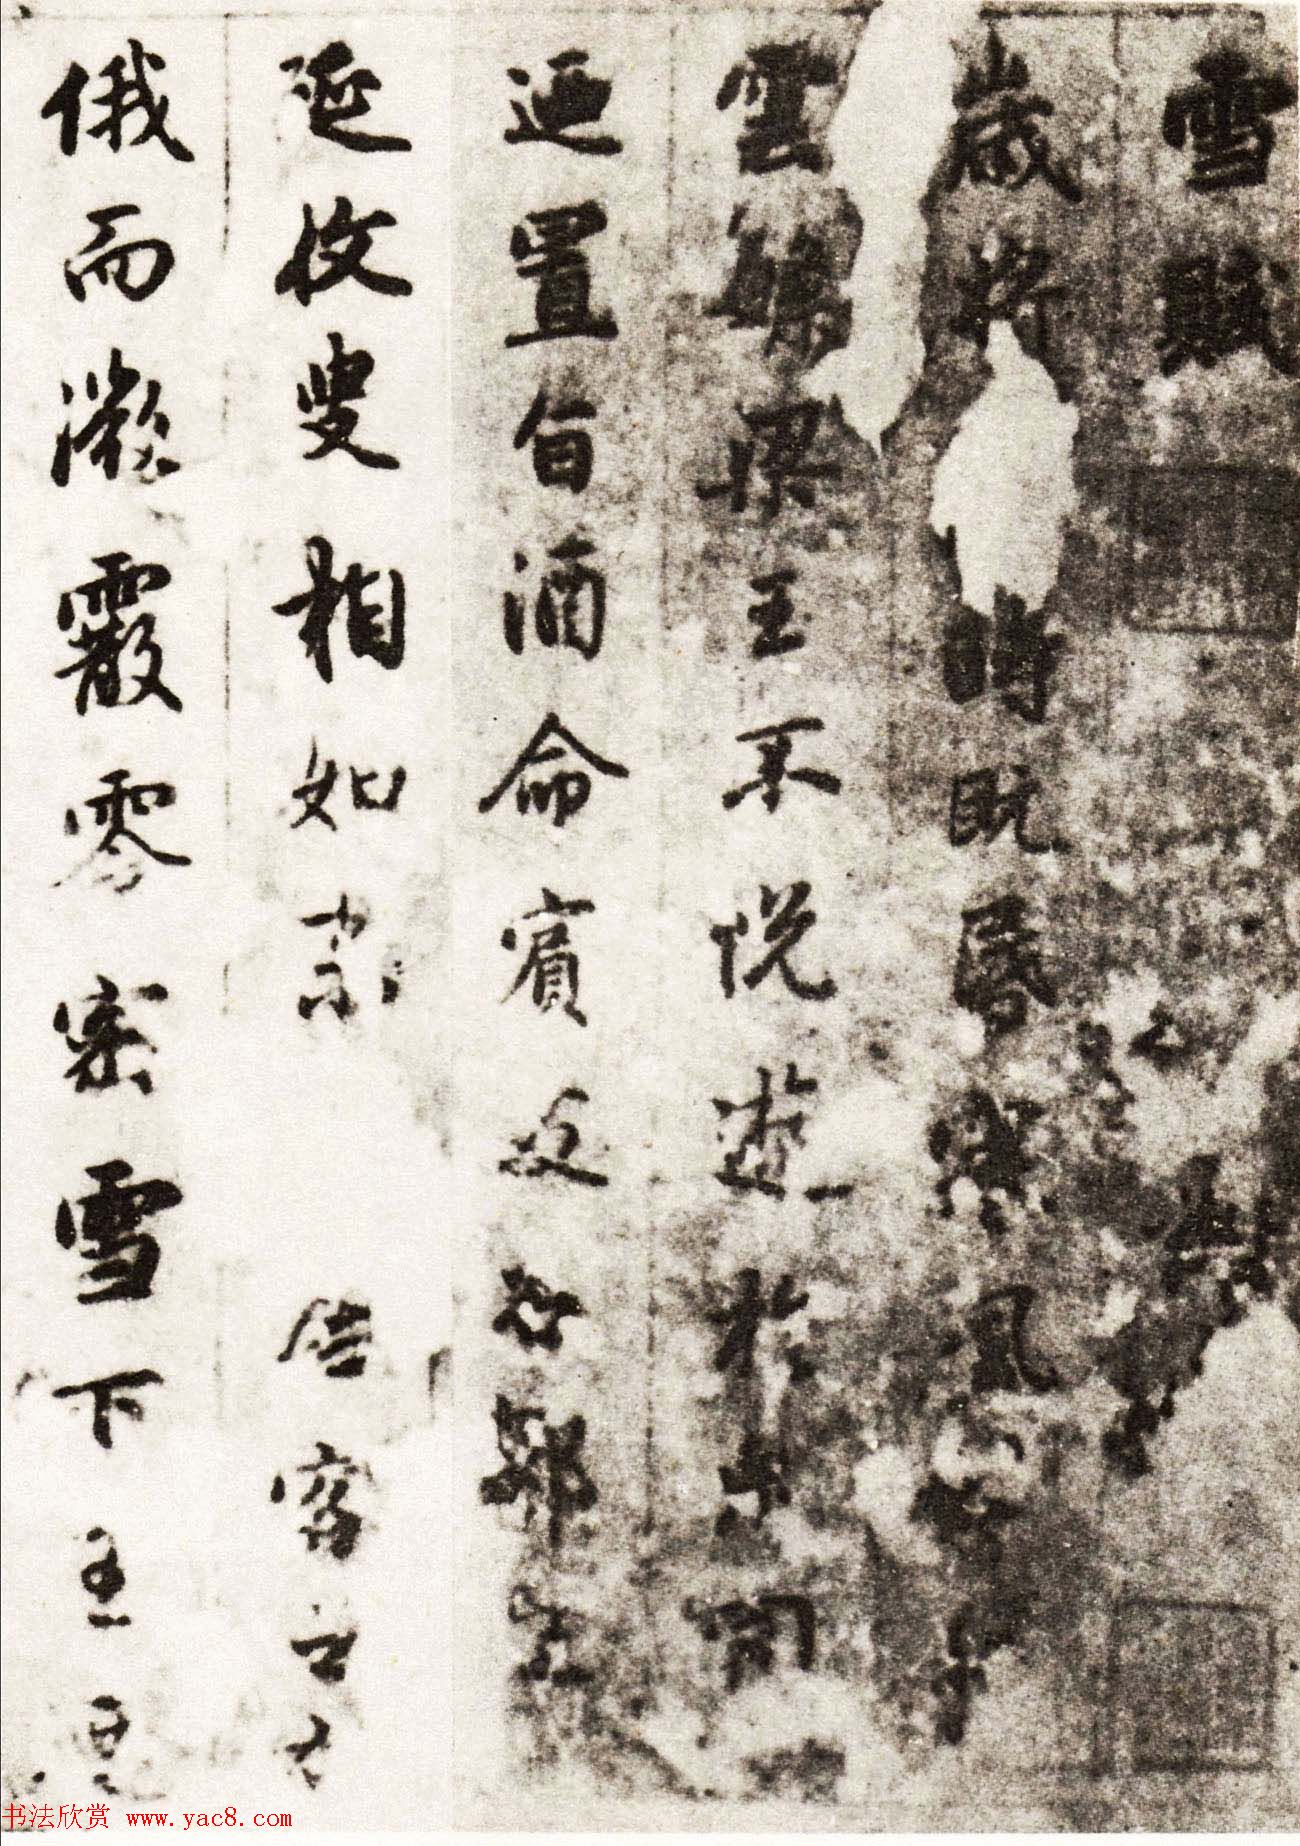 雪賦
歲將時既昏寒風
雲繁梁王不悅遊於兔園
迺置旨酒命賓友召鄒生
延枚叟相如末居客之右
俄而微霰零密雪下王迺
书法欣赏 www.yac8.com